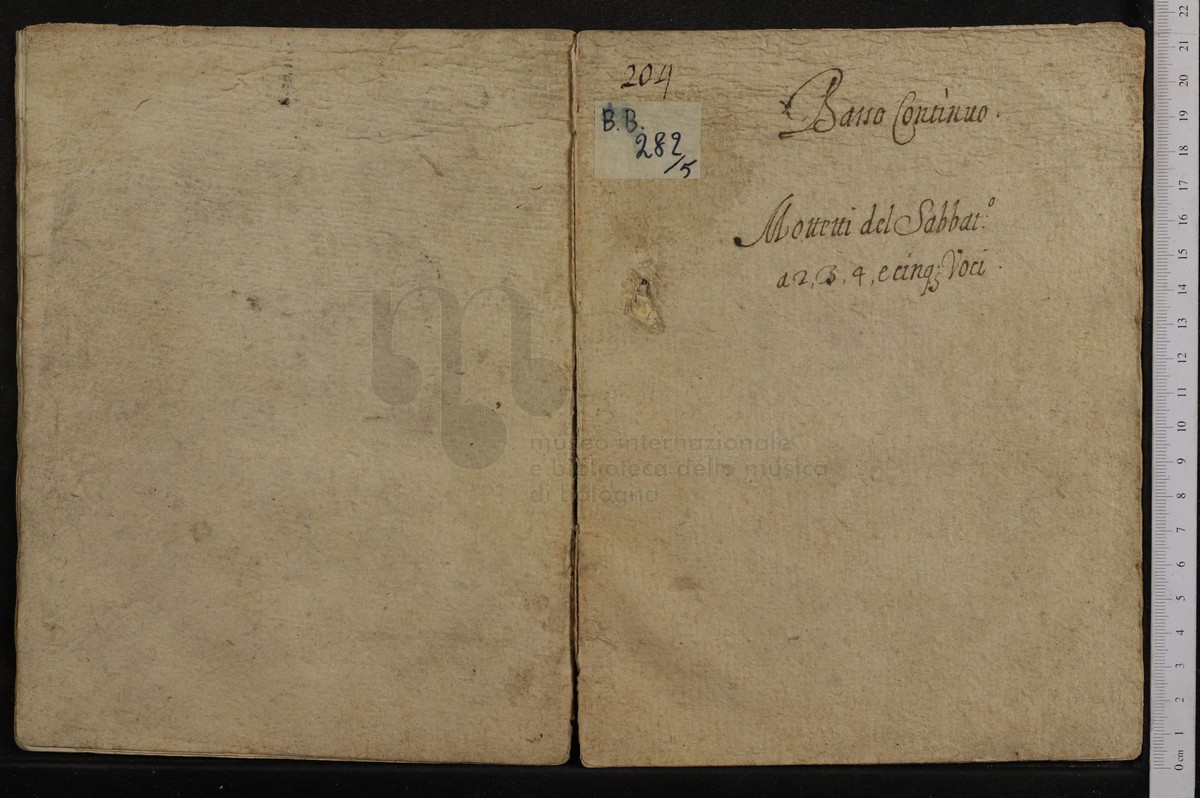 204
B.B.
282/5
Basso Continuo.
Mottetti del Sabbat.º
a 2, 3, 4, e cinq; Voci.
museo internazionale
e biblioteca della musica
di bologna
0 cm 1 2 3 4 5 6 7 8 9 10 11 12 13 14 15 16 17 18 19 20 21 22